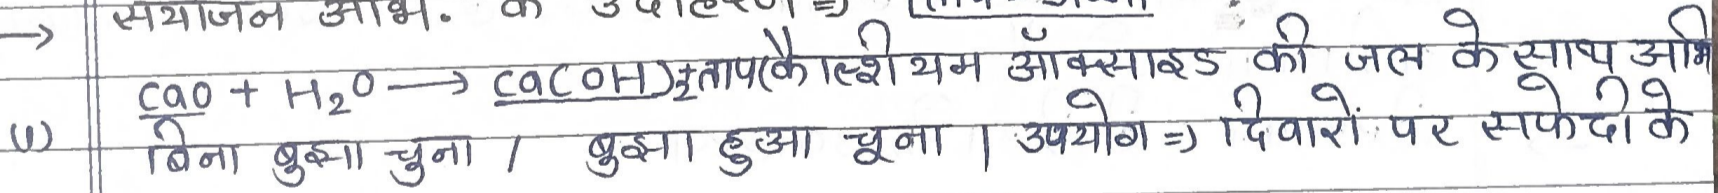 → संयोजन अभि. के उदाहरण ⇒
CaO + H₂O → Ca(OH)₂ + ताप (कैल्शीयम ऑक्साइड की जल के साथ अभि
(1) बिना बुझा चुना / बुझा हुआ चूना | उपयोग ⇒ दिवारों पर सफेदी के